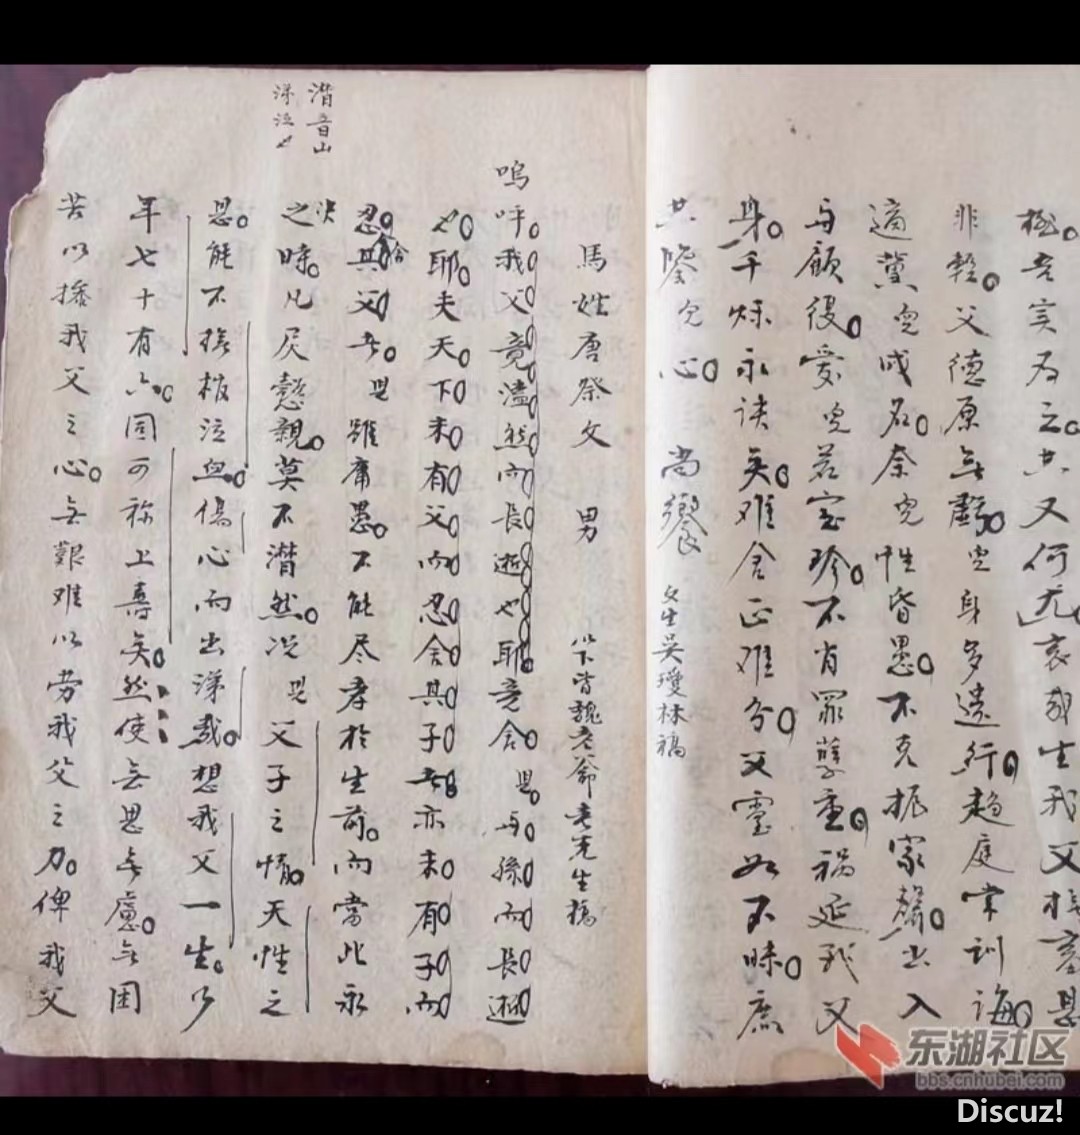 極吾实为之其又何尤哀哉生我父
非轻父德原無虧兒身多遗行趋庭常训诲
適黨兒成名奈兒性昏愚不克振家聲出入
与顧復爱兒若宝珍不肖罪孽重祸延我父
身千秋永诀矣难舍正难分父靈如不昧庶
共鑒兒心 尚饗 吴瓊林稿
馬姓唐祭文 男 皆魏老爺老先生稿
嗚呼我父竟溘然而長逝也耶竟舍児与孫而長逝
也耶夫天下未有父而忍舍其子者亦未有子而
忍舍其父者児雖庸愚不能尽孝於生前而當此永
之诀時凡属懿親莫不潸然况児父子之情天性之
恩能不接板泣血傷心而出涕哉想我父一生
年七十有六固可称上壽矣然使無思無慮無困
苦以撄我父之心無艱难以劳我父之力俾我父
潸音山
涕泣也
东湖社区
bbs.cnhubei.com
Discuz!